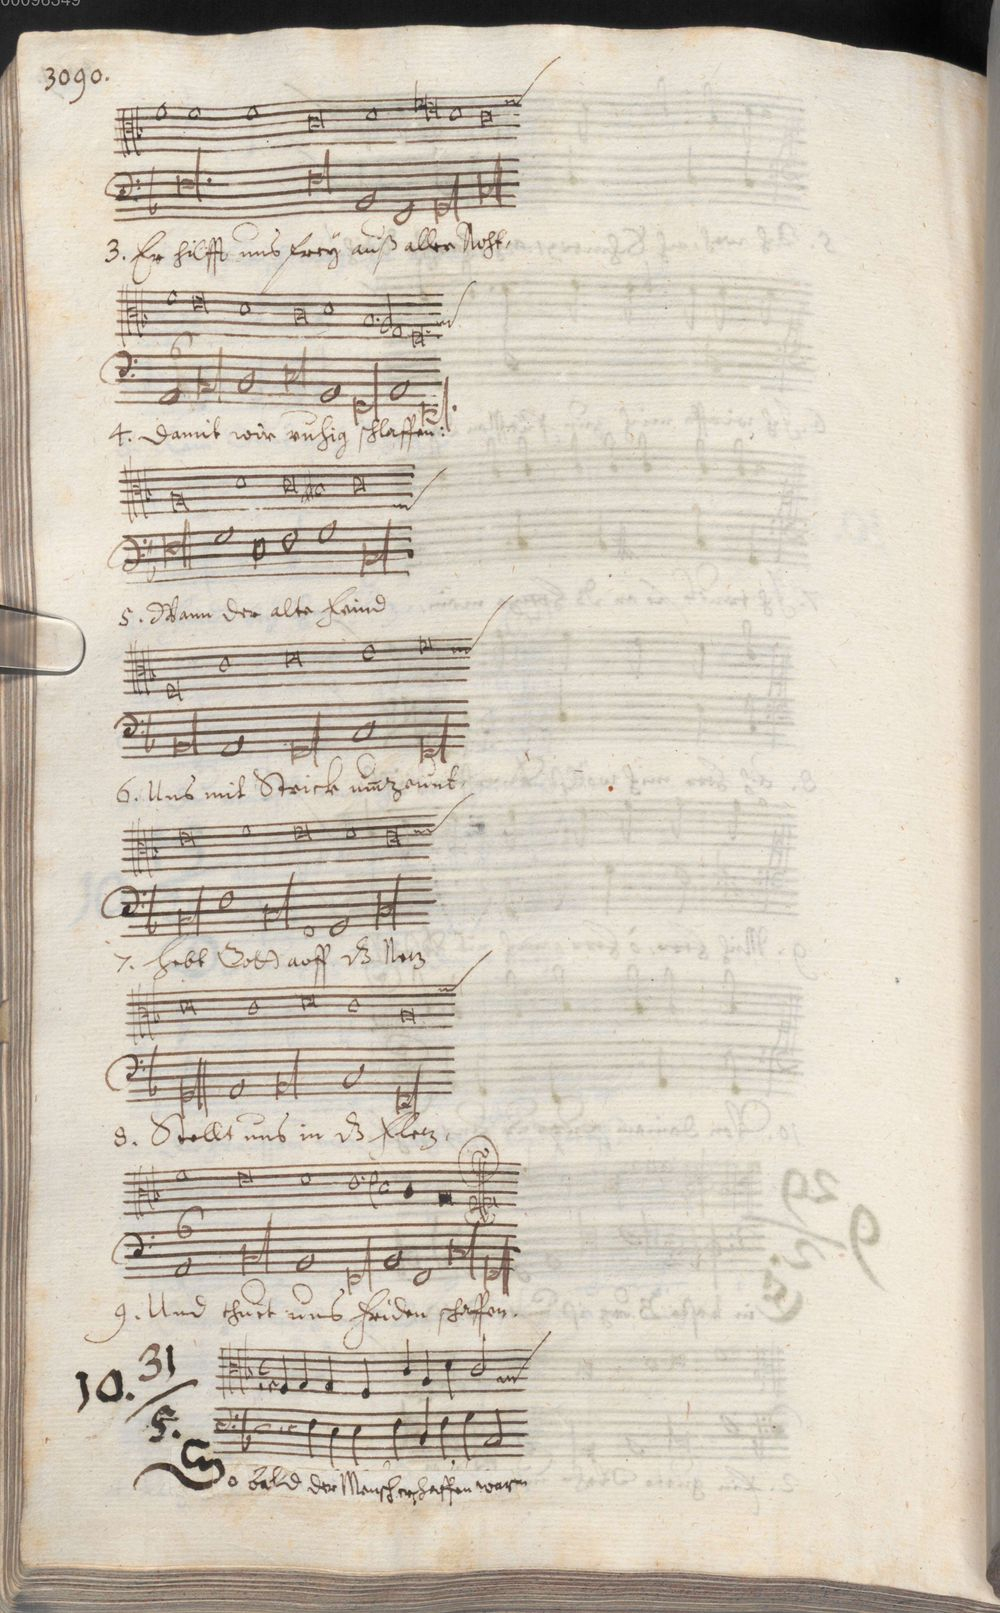 00096349
3090.
3. Er hilfft uns frey auß aller Noht,
6
4. Damit wir ruhig schlaffen:
5. Wann der alte Feind
6. Uns mit Strick umzeunt,
7. hebt Gott auff dz Netz
8. Stellt uns in dz Fletz,
6
9. Und thuet uns Friden schaffen.
10. 31
5.
So bald der Mensch erschaffen warn